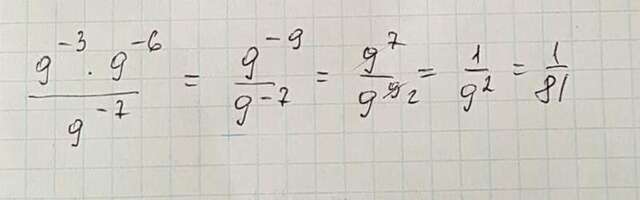 9^-3 · 9^-6 / 9^-7 = 9^-9 / 9^-7 = 9^7 / 9^9 2 = 1 / 9^2 = 1 / 81